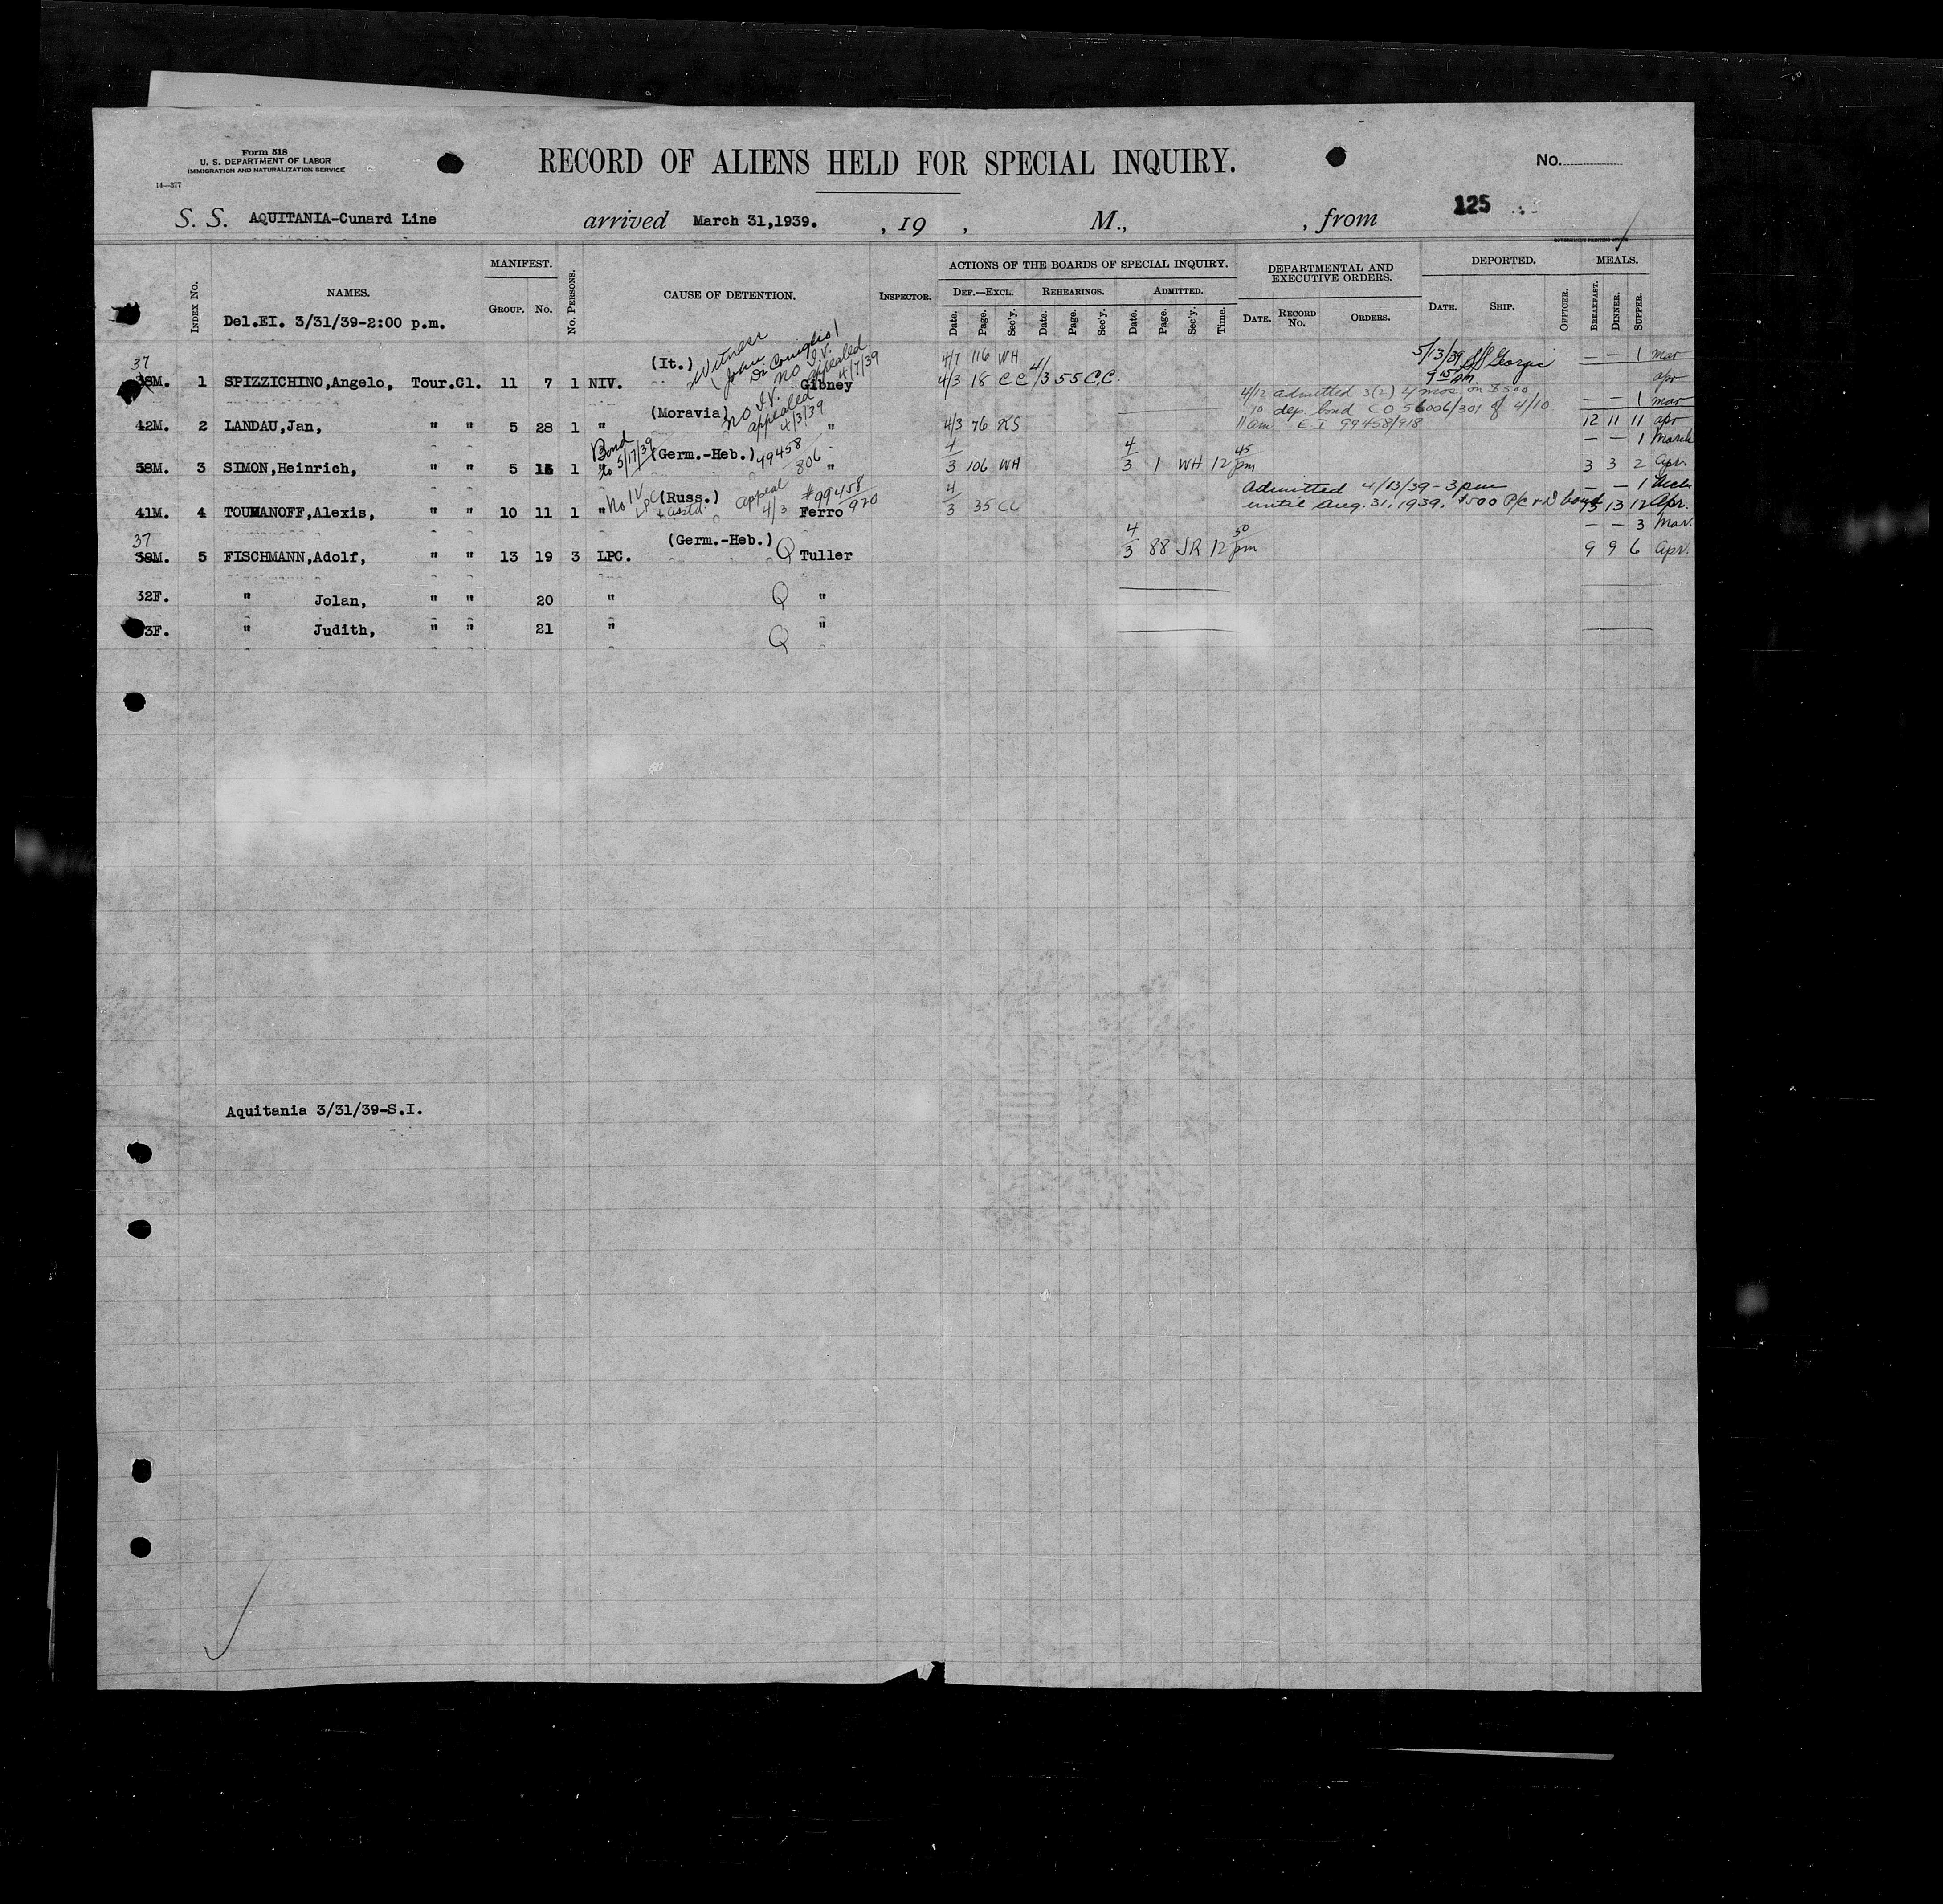 Form 518
U. S. DEPARTMENT OF LABOR
IMMIGRATION AND NATURALIZATION SERVICE
14—377
RECORD OF ALIENS HELD FOR SPECIAL INQUIRY.
No.
S. S. AQUITANIA-Cunard Line arrived March 31,1939. , 19 , M., , from 125
GOVERNMENT PRINTING OFFICE
INDEX No. NAMES. MANIFEST. GROUP. NO. No. PERSONS. CAUSE OF DETENTION. INSPECTOR. ACTIONS OF THE BOARDS OF SPECIAL INQUIRY. DEPARTMENTAL AND EXECUTIVE ORDERS. DEPORTED. MEALS.
DEF.—EXCL. REHEARINGS. ADMITTED.
Date. Page. Sec'y. Date. Page. Sec'y. Date. Page. Sec'y. Time. DATE. RECORD No. ORDERS. DATE. SHIP. OFFICER. BREAKFAST. DINNER. SUPPER.
Del.EI. 3/31/39-2:00 p.m.
37 (It.) Witness (John Di Coniglio) No I.V. appealed 4/7/39 4/7 116 WH 5/13/39 SS Georgic — — 1 mar
38M. 1 SPIZZICHINO,Angelo, Tour.Cl. 11 7 1 NIV. Gibney 4/3 18 CC 4/3 55 C.C. 9 15 AM. apr
(Moravia) No I.V. appealed 4/3/39 4/12 admitted 3(2) 4 mos. on $500 — — 1 mar
42M. 2 LANDAU,Jan, " " 5 28 1 " " 4/3 76 KS 10 dep. bond CO 56006/301 of 4/10 12 11 11 apr
11 am E.I 99458/918
Bond to 5/17/39 (Germ.-Heb.) 99458/806 — — 1 March
58M. 3 SIMON,Heinrich, " " 5 15 1 " " 4/3 106 WH 4/3 1 WH 12 45 pm 3 3 2 Apr.
No IV LPC (Russ.) appeal 4/3 #99458/920 Admitted 4/13/39 - 3 pm — — 1 Mch
41M. 4 TOUMANOFF,Alexis, " " 10 11 1 " Ferro 4/3 35 CC until Aug. 31, 1939. $500 P/C + D bond 13 13 12 Apr.
37 (Germ.-Heb.) — — 3 Mar.
38M. 5 FISCHMANN,Adolf, " " 13 19 3 LPC. Q Tuller 4/3 88 JR 12 50 pm 9 9 6 Apr.
32F. " Jolan, " " 20 " Q "
3F. " Judith, " " 21 " Q "
Aquitania 3/31/39-S.I.